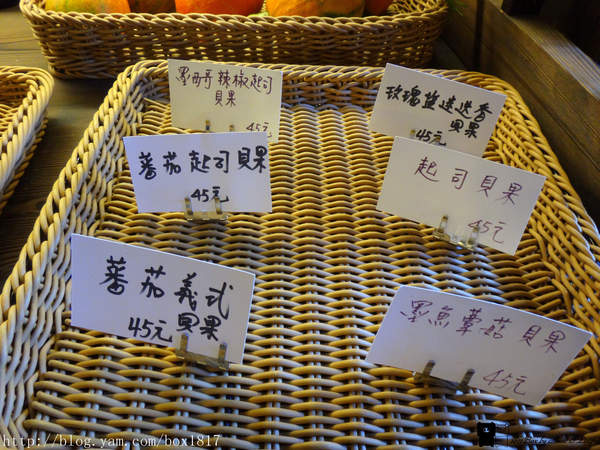 墨西哥辣椒起司
貝果
45元
玫瑰鹽迷迭香
貝果
45元
蕃茄起司貝果
45元
起司貝果
45元
蕃茄義式
45元貝果
墨魚蘑菇貝果
45元
http://blog.yam.com/box1817